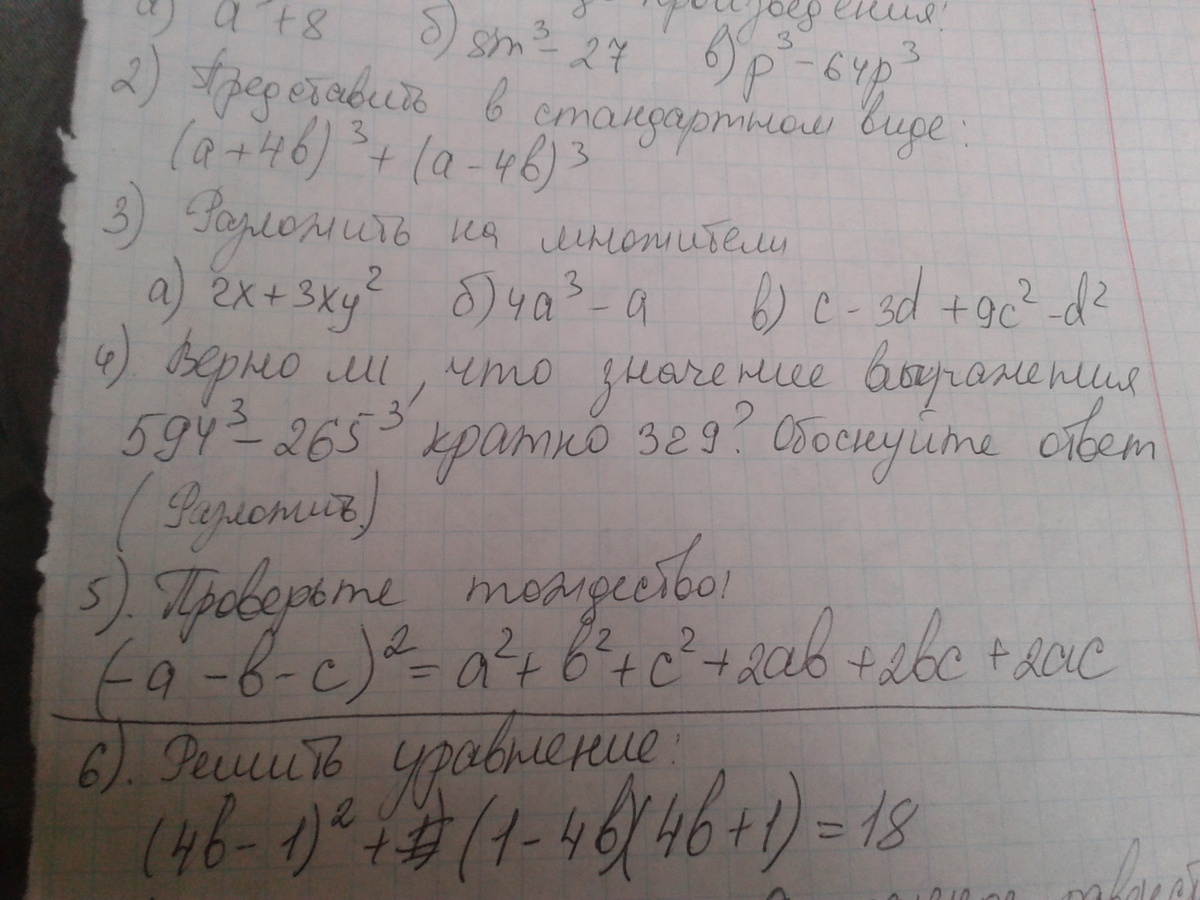 а) a³ + 8 б) 8m³ - 27 в) p³ - 64p³
произведения:
2) Представить в стандартном виде:
(a + 4b)³ + (a - 4b)³
3) Разложить на множители
а) 2x + 3xy² б) 4a³ - a в) c - 3d + 9c² - d²
4). Верно ли, что значение выражения
594³ - 265³ кратно 329? Обоснуйте ответ
(Разложить)
5). Проверьте тождество!
(-a - b - c)² = a² + b² + c² + 2ab + 2bc + 2ac
6). Решить уравнение:
(4b - 1)² + (1 - 4b)(4b + 1) = 18